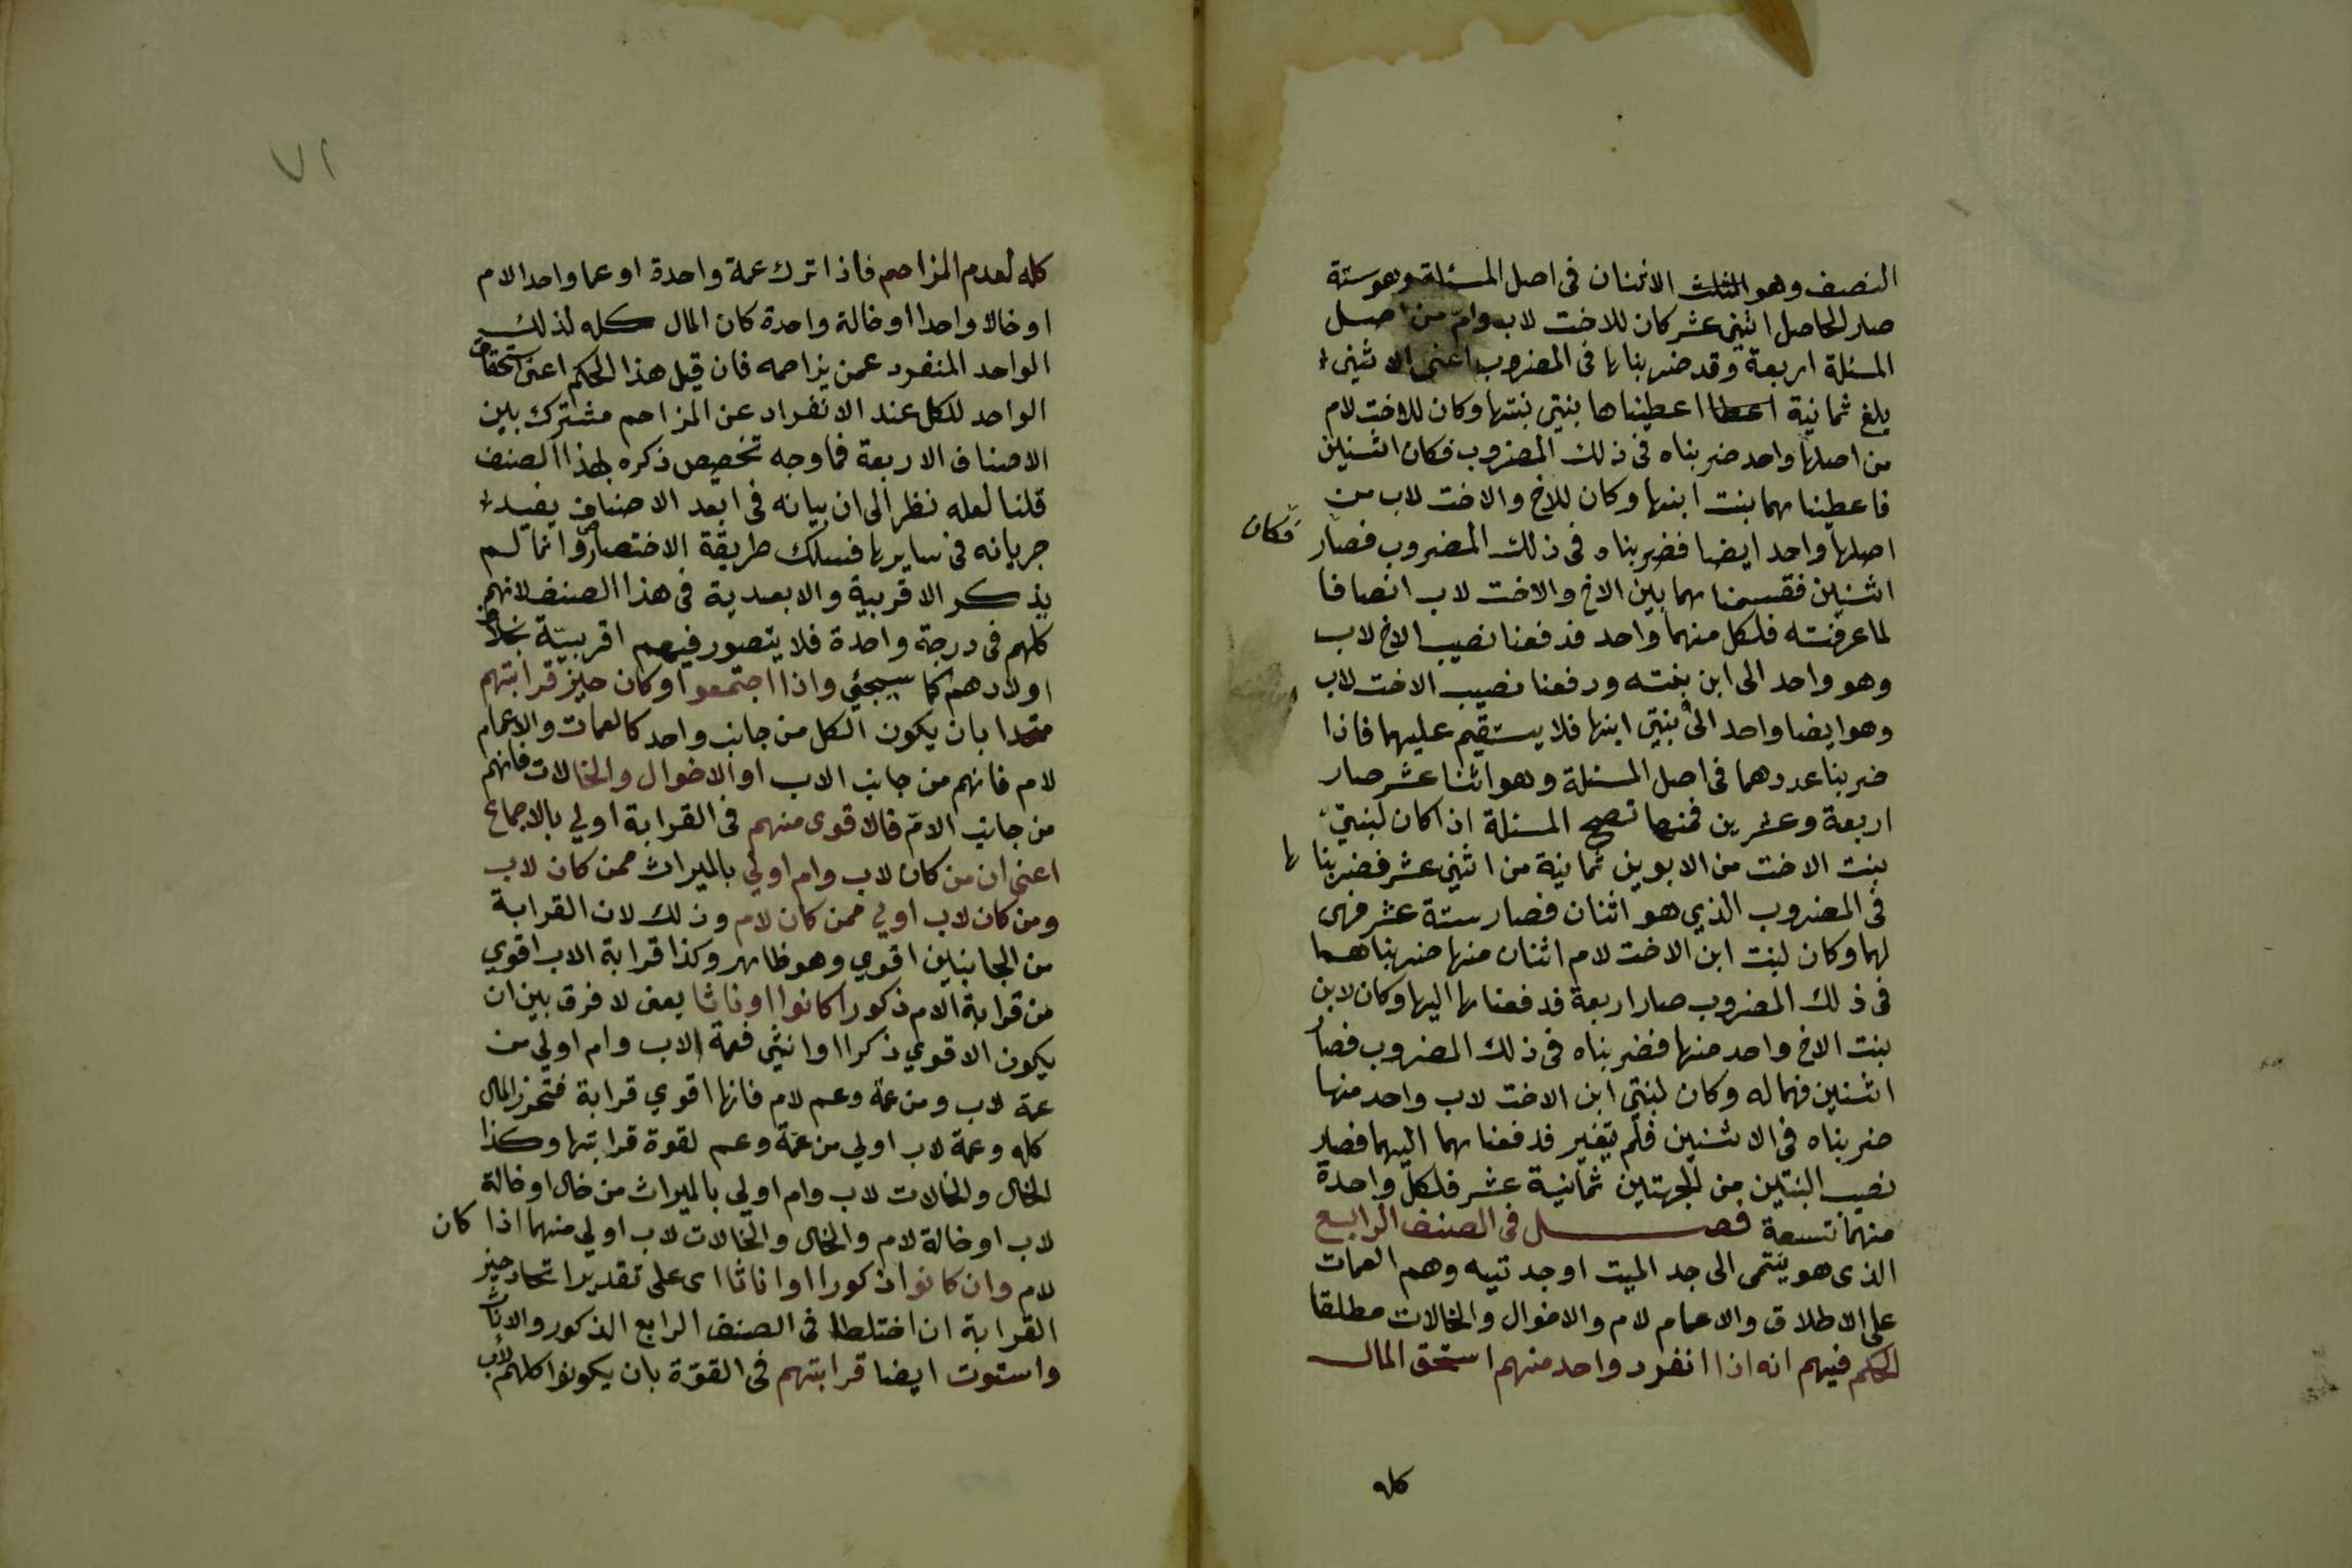 النصف وهو الثلث الاثنان فى اصل المسئلة وهو ستة
صار الحاصل اثنى عشر كان للاخت لاب وامّ من اصل
المسئلة اربعة وقد ضربناها فى المضروب اعنى الاثنين
بلغ ثمانية اعطيناها بنتى بنتها وكان للاخت لام
من اصلها واحد ضربناه فى ذلك المضروب فكان اثنين
فاعطيناهما بنت ابنها وكان للاخ والاخت لاب من
اصلها واحد ايضا فضربناه فى ذلك المضروب فصار
فكان
اثنين فقسمناهما بين الاخ والاخت لاب انصافا
لما عرفته فلكل منهما واحد فدفعنا نصيب الاخ لاب
وهو واحد الى ابن بنته ودفعنا نصيب الاخت لاب
وهو ايضا واحد الى بنتى ابنها فلا يستقيم عليهما فاذا
ضربنا عددهما فى اصل المسئلة وهو اثنا عشر صار
اربعة وعشرين فمنها تصح المسئلة اذ كان لبنتى
بنت الاخت من الابوين ثمانية من اثنى عشر فضربناها
فى المضروب الذي هو اثنان فصار ستة عشر فهى
لهما وكان لبنت ابن الاخت لام اثنان منها ضربناهما
فى ذلك المضروب صار اربعة فدفعناها اليها وكان لابن
بنت الاخ واحد منها فضربناه فى ذلك المضروب فصار
اثنين فهما له وكان لبنتى ابن الاخت لاب واحد منها
ضربناه فى الاثنين فلم يتغير فدفعناهما اليهما فصار
نصيب البنتين من الجهتين ثمانية عشر فلكل واحدة
منهما تسعة فصل فى الصنف الرابع
الذى هو ينتمى الى جد الميت او جدتيه وهم العمات
على الاطلاق والاعمام لام والاخوال والخالات مطلقا
الحكم فيهم انه اذا انفرد واحد منهم استحق المال
كله
٧١
كله لعدم المزاحم فاذا ترك عمة واحدة او عما واحدا لام
او خالا واحدا او خالة واحدة كان المال كله لذلك
الواحد المنفرد عمن يزاحمه فان قيل هذا الحكم اعنى استحقاق
الواحد للكل عند الانفراد عن المزاحم مشترك بين
الاصناف الاربعة فما وجه تخصيص ذكره بهذا الصنف
قلنا لعله نظر الى ان بيانه فى ابعد الاصناف يفيد
جريانه فى سايرها فسلك طريقة الاختصار وانما لم
يذكر الاقربية والابعدية فى هذا الصنف لانهم
كلهم فى درجة واحدة فلا يتصور فيهم اقربية بخلاف
اولادهم كما سيجئ واذا اجتمعوا وكان حيز قرابتهم
متحدا بان يكون الكل من جانب واحد كالعمات والاعمام
لام فانهم من جانب الاب او الاخوال والخالات فانهم
من جانب الامّ فالاقوى منهم فى القرابة اولي بالاجماع
اعنى ان من كان لاب وام اولي بالميراث ممن كان لاب
ومن كان لاب اولي ممن كان لام وذلك لان القرابة
من الجانبين اقوي وهو ظاهر وكذا قرابة الاب اقوي
من قرابة الام ذكورا كانوا او اناثا يعنى لا فرق بين ان
يكون الاقوي ذكرا او انثى فعمة لاب وام اولي من
عمة لاب ومن عمة وعم لام فانها اقوي قرابة فتحرز المال
كله وعمة لاب اولي من عمة وعم لقوة قرابتها وكذا
الخال والخالات لاب وام اولى بالميراث من خال او خالة
لاب او خالة لام والخال والخالات لاب اولي منهما اذا كان
لام وان كانوا ذكورا او اناثا اى على تقدير اتحاد حيز
القرابة ان اختلط فى الصنف الرابع الذكور والاناث
واستوت ايضا قرابتهم فى القوّة بان يكونوا كلهم لاب